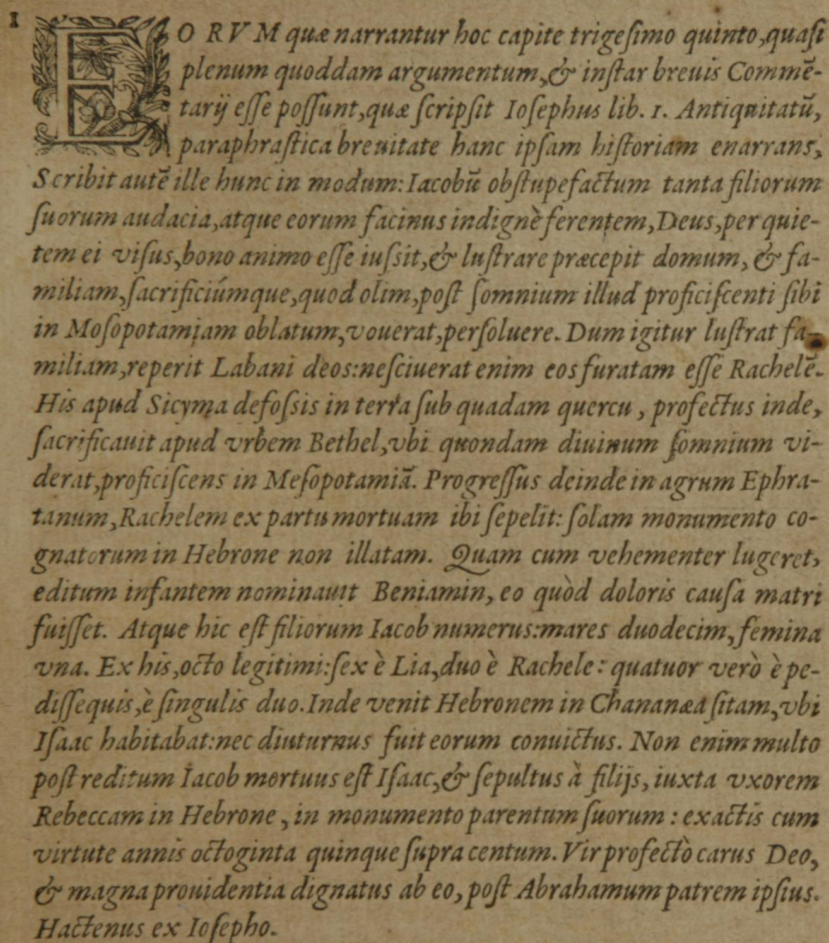 1
EORVM quæ narrantur hoc capite trigesimo quinto, quasi
plenum quoddam argumentum, & instar breuis Commẽ-
tarij esse possunt, quæ scripsit Iosephus lib. 1. Antiquitatũ,
paraphrastica breuitate hanc ipsam historiam enarrans,
Scribit autẽ ille hunc in modum: Iacobũ obstupefactum tanta filiorum
suorum audacia, atque eorum facinus indignè ferentem, Deus, per quie-
tem ei visus, bono animo esse iussit, & lustrare præcepit domum, & fa-
miliam, sacrificiúmque, quod olim, post somnium illud proficiscenti sibi
in Mosopotamiam oblatum, vouerat, persoluere. Dum igitur lustrat fa-
miliam, reperit Labani deos: nesciuerat enim eos furatam esse Rachelẽ.
His apud Sicyma defossis in terra sub quadam quercu, profectus inde,
sacrificauit apud vrbem Bethel, vbi quondam diuinum somnium vi-
derat, proficiscens in Mesopotamiã. Progressus deinde in agrum Ephra-
tanum, Rachelem ex partu mortuam ibi sepelit: solam monumento co-
gnatorum in Hebrone non illatam. Quam cum vehementer lugeret,
editum infantem nominauit Beniamin, eo quòd doloris causa matri
fuisset. Atque hic est filiorum Iacob numerus: mares duodecim, femina
vna. Ex his, octo legitimi: sex è Lia, duo è Rachele: quatuor verò è pe-
dissequis, è singulis duo. Inde venit Hebronem in Chananæa sitam, vbi
Isaac habitabat: nec diuturnus fuit eorum conuictus. Non enim multo
post reditum Iacob mortuus est Isaac, & sepultus à filijs, iuxta vxorem
Rebeccam in Hebrone, in monumento parentum suorum: exactis cum
virtute annis octoginta quinque supra centum. Vir profectò carus Deo,
& magna prouidentia dignatus ab eo, post Abrahamum patrem ipsius.
Hactenus ex Iosepho.